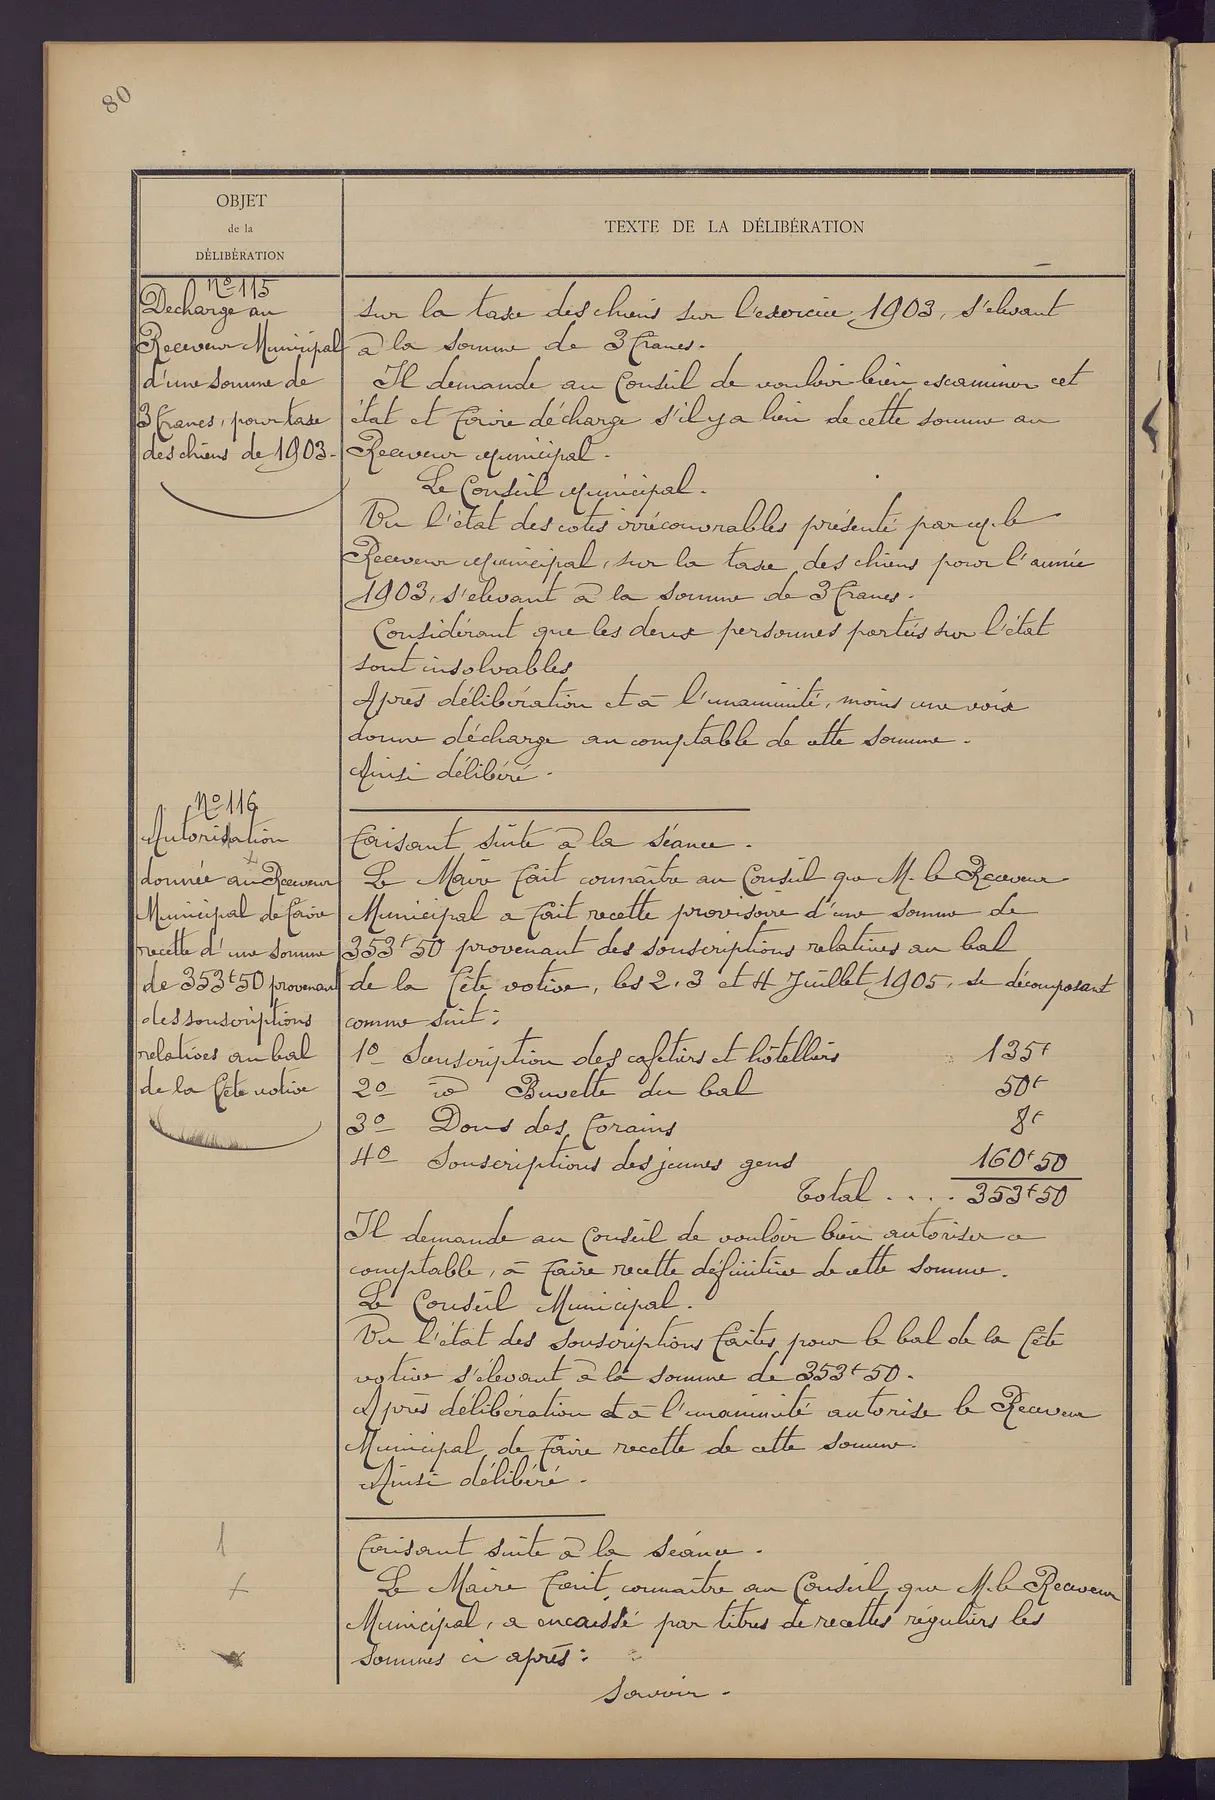 80
OBJET
de la
DÉLIBÉRATION
TEXTE DE LA DÉLIBÉRATION
Nº 115
Decharge au
Receveur Municipal
d'une somme de
3 francs, pour taxe
des chiens de 1903.
sur la taxe des chiens sur l'exercice 1903, s'elevant
à la somme de 3 francs.
Il demande au Conseil de vouloir bien examiner cet
état et faire décharge s'il y a lieu de cette somme au
Receveur Municipal.
Le Conseil Municipal.
Vu l'état des cotes irrécouvrables présenté par M. le
Receveur Municipal, sur la taxe des chiens pour l'année
1903, s'elevant à la somme de 3 francs.
Considérant que les deux personnes portées sur l'état
sont insolvables
Après délibération et à l'unanimité, moins une voix
donne décharge au comptable de cette somme.
Ainsi délibéré.
Nº 116
Autorisation
donnée au Receveur
Municipal de faire
recette d'une somme
de 353f50 provenant
des souscriptions
relatives au bal
de la fête votive
Faisant suite à la séance.
Le Maire fait connaître au Conseil que M. le Receveur
Municipal a fait recette provisoire d'une somme de
353f50 provenant des souscriptions relatives au bal
de la fête votive, les 2, 3 et 4 Juillet 1905, se décomposant
comme suit:
1º Souscription des cafetiers et hôtelliers 135f
2º id Buvette du bal 50f
3º Dons des forains 8f
4º Souscriptions des jeunes gens 160f50
Total .... 353f50
Il demande au Conseil de vouloir bien autoriser ce
comptable, à faire recette définitive de cette somme.
Le Conseil Municipal.
Vu l'état des souscriptions faites pour le bal de la fête
votive s'élevant à la somme de 353f50.
Après délibération et à l'unanimité autorise le Receveur
Municipal de faire recette de cette somme.
Ainsi délibéré.
Faisant suite à la séance.
Le Maire fait connaître au Conseil que M. le Receveur
Municipal, a encaissé par titres de recettes réguliers les
sommes ci après:
Savoir.